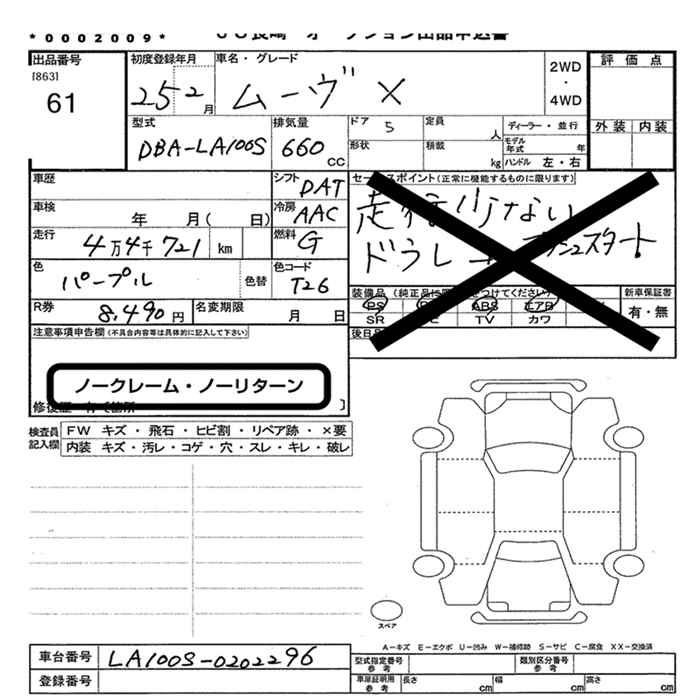 *0002009*
出品番号
[863]
61
初度登録年月
25 2 月
車名・グレード
ムーヴ X
2WD
・
4WD
評価点
外装 内装
型式
DBA-LA100S
排気量
660 CC
ドア 5
定員 人
ディーラー・並行
形状
積載 kg
モデル年式 年
ハンドル 左・右
車歴
シフト DAT
セールスポイント(正常に機能するものに限ります)
走行少ない
車検 年 月( 日)
冷房 AAC
走行 4万4千721 km
燃料 G
色 パープル
色替
色コード T26
R券 8,490円
名変期限 月 日
装備品
PS
ABS
エアB
SR
TV
カワ
新車保証書
有・無
注意事項申告欄(不具合内容等は具体的に記入して下さい)
ノークレーム・ノーリターン
検査員記入欄
FW キズ・飛石・ヒビ割・リペア跡・×要
内装 キズ・汚レ・コゲ・穴・スレ・キレ・破レ
スペア
A−キズ E−エクボ U−凹み W−補修跡 S−サビ C−腐食 XX−交換済
車台番号 LA100S-0202296
登録番号
型式指定番号 参考
類別区分番号 参考
車庫証明用 参考
長さ cm
幅 cm
高さ cm